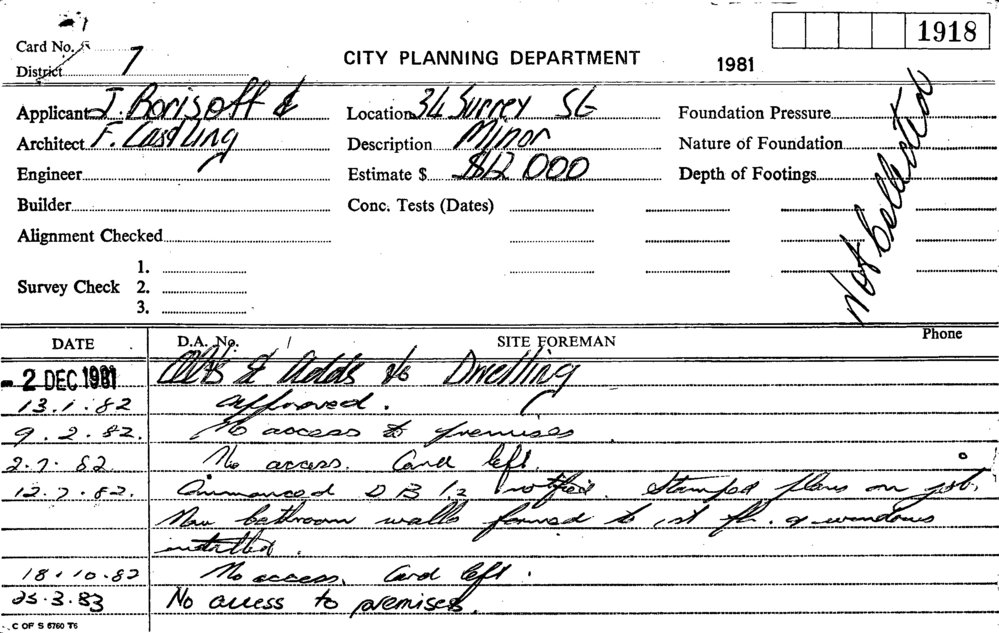 1918
Card No. 7
District
CITY PLANNING DEPARTMENT
1981
Applicant J. Borisoff &
Location 34 Surrey St
Foundation Pressure
Architect F. Castling
Description Minor
Nature of Foundation
Engineer
Estimate $ $12 000
Depth of Footings
Not collected
Builder
Conc. Tests (Dates)
Alignment Checked
1.
Survey Check 2.
3.
DATE D.A. No. SITE FOREMAN Phone
- 2 DEC 1981 Alts & Adds to Dwelling
13.1.82 approved.
9.2.82. No access to premises
2.7.82 No access. Card left.
12.7.82. Commenced D B I. notified. Stamped plans on job.
New bathroom walls formed to 1st flr. & windows
installed.
18.10.82 No access. Card left.
25.3.83 No access to premises.
C OF S 6760 T6